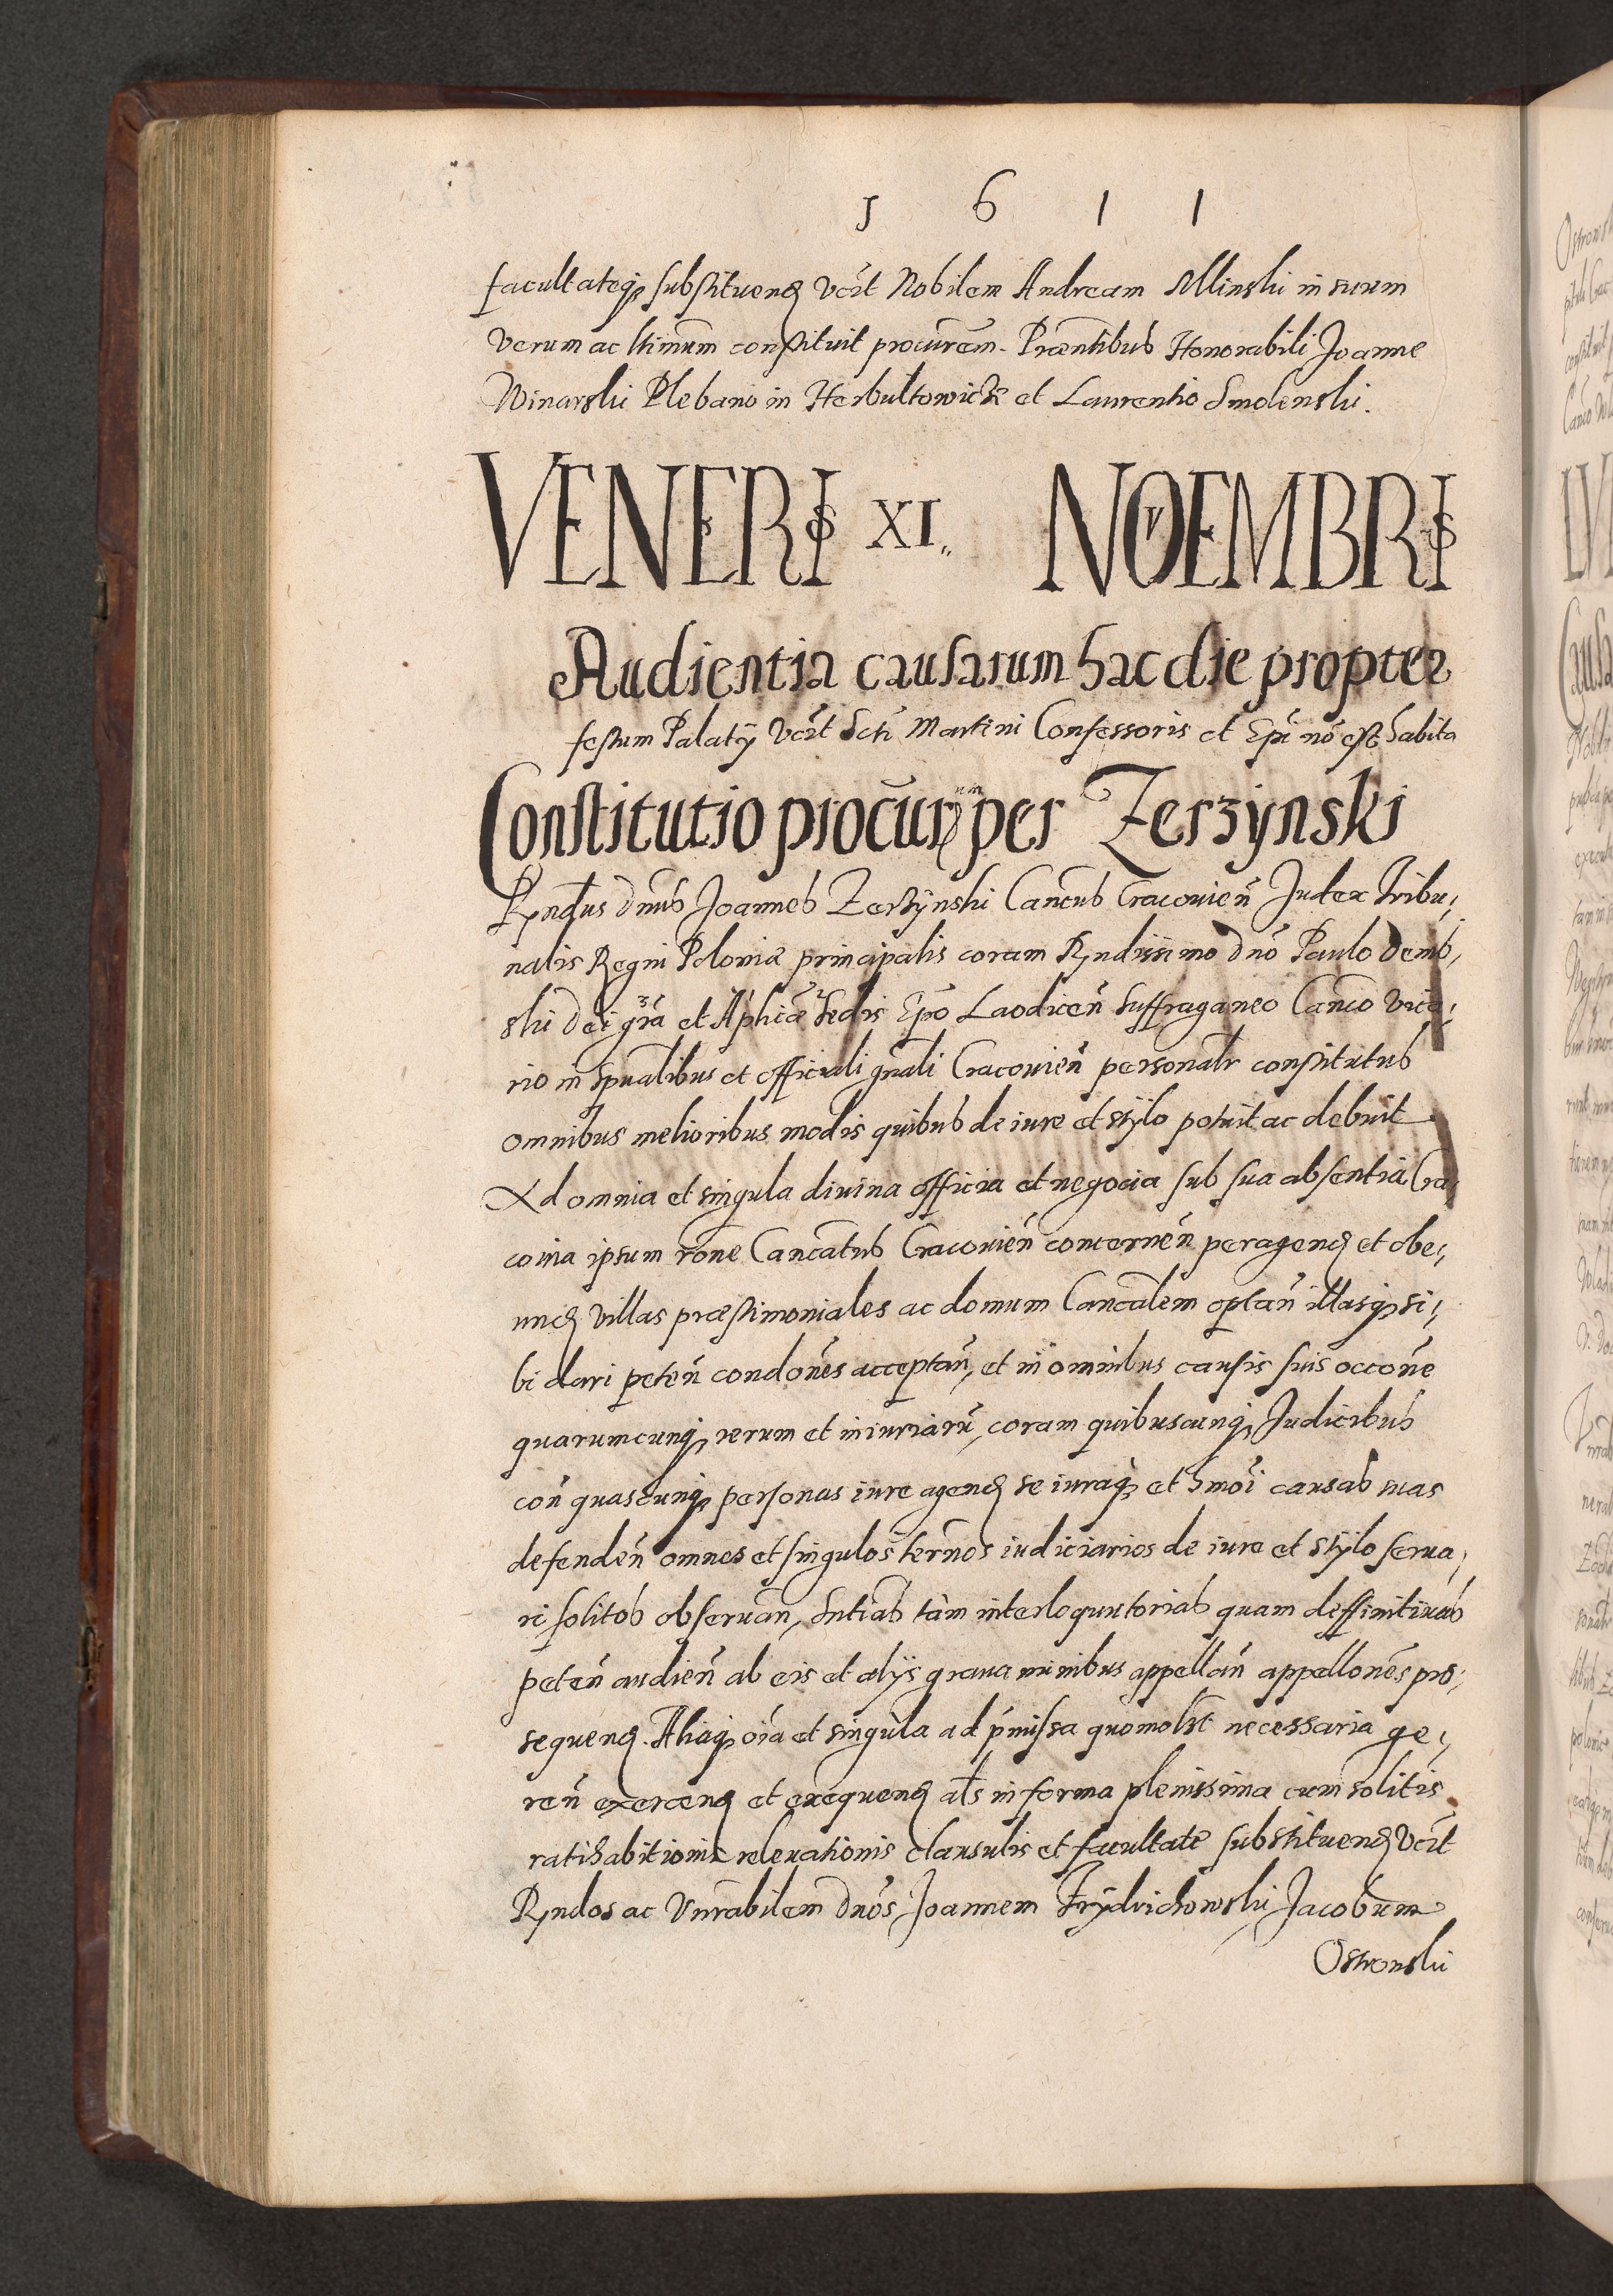 1 6 1 1
facultateq₃ substituend̄ vcīt Nobilem Andream Mlinski in suum
verum ac ltīmum constituit procurēm. Praesentibus Honorabili Joanne
Winarski Plebano in Herbultowicze et Laurentio Smolenski.
VENERIS XI. NOVEMBRIS
Audientia causarum hac die propter
festum Palatÿ vcīt Scti Martini Confessoris et Epī nō est habita
Constitutio procurūm per Zerzynski
Rndus dnūs Joannes Zerzÿnski Cancūs Cracovien̄ Judex Tribu,
nalis Regni Poloniæ principalis coram Rndissimo dnō Paulo Demb,
ski Dei grā et Aplicæ Sedis Epō Laodicen̄ Suffraganeo Canco vica,
rio in Spualibus et officiali gnāli Cracovien̄ personalr constitutus
omnibus melioribus modis quibus de iure et stÿlo potuit ac debuit
Ad omnia et singula divina officia et negocia sub sua absentia Cra,
covia ipsum rōne Cancatus Cracovien̄ concernen̄ peragend̄ et obe,
und̄ villas præstimoniales ac domum Cancalem optan̄ illasq₃ si,
bi dari peten̄ condōnes acceptan̄, et in omnibus causis suis occōne
quarumcunq₃ rerum et iniuriarū, coram quibuscunq₃ Judicibus
con̄ quascunq₃ personas iure agend̄ se iuraq₃ et hmōi causas suas
defenden̄ omnes et singulos termōs iudiciarios de iure et stÿlo serva,
ri solitos observan̄, Sntias tàm interloquutorias quam deffinitivas
peten̄ audien̄ ab eis et alÿs gravaminibus appellan̄ appellōnes pro,
sequend̄. Aliaq₃ oīa et singula ad pmissa quomolbt necessaria ge,
ren̄ exercend̄ et exequend̄ als in forma plenissima cum solitis
ratihabitionis relevationis clausulis et facultate substituend̄ vcīt
Rndos ac Vnrabilem dnōs Joannem Frÿdrichowski, Jacobum
Ostrowski